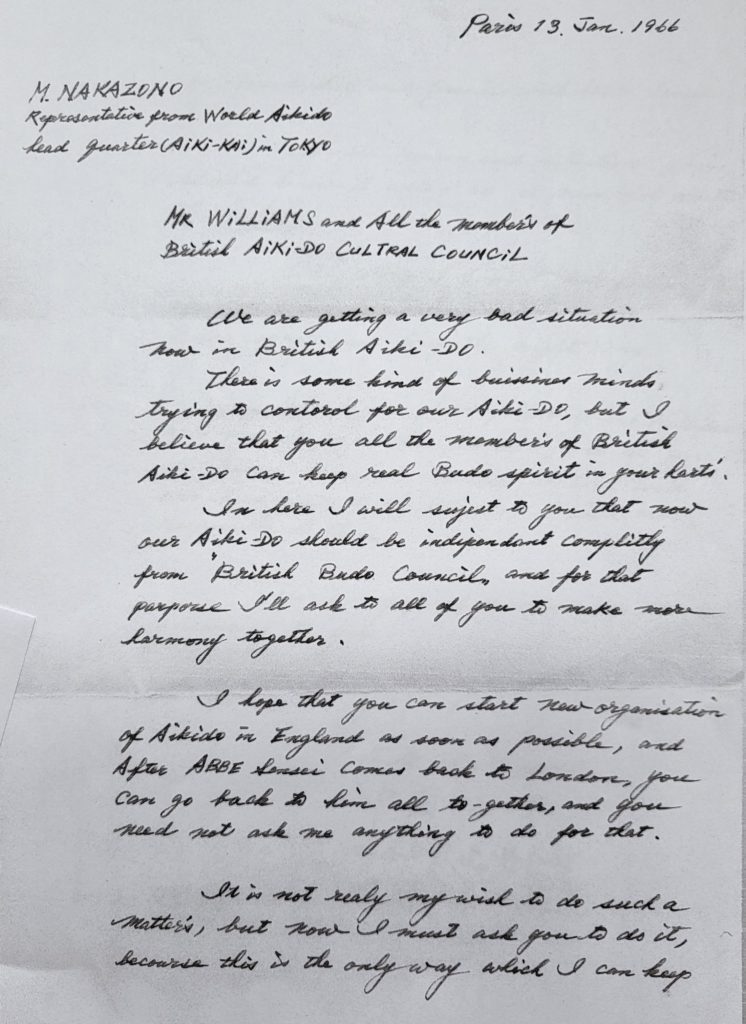 Paris 13. Jan. 1966
M. NAKAZONO
Representative from World Aikido
head quarter (AiKi-KAi) in TOKYO
MR WiLLiAMS and All the member's of
British AiKi-DO CULTRAL COUNCiL
We are getting a very bad situation
now in British Aiki-DO.
There is some kind of buissines minds
trying to contorol for our Aiki-DO, but I
believe that you all the member's of British
Aiki-DO can keep real Budo spirit in your harts'.
In here I will sujest to you that now
our Aiki-DO should be indipendant complitly
from "British Budo Council„ and for that
parporse I'll ask to all of you to make more
harmony together.
I hope that you can start new organisation
of Aikido in England as soon as possible, and
After ABBE Sensei comes back to London, you
can go back to him all to-gether, and you
need not ask me anything to do for that.
It is not realy my wish to do such a
matter's, but now I must ask you to do it,
becourse this is the only way which I can keep